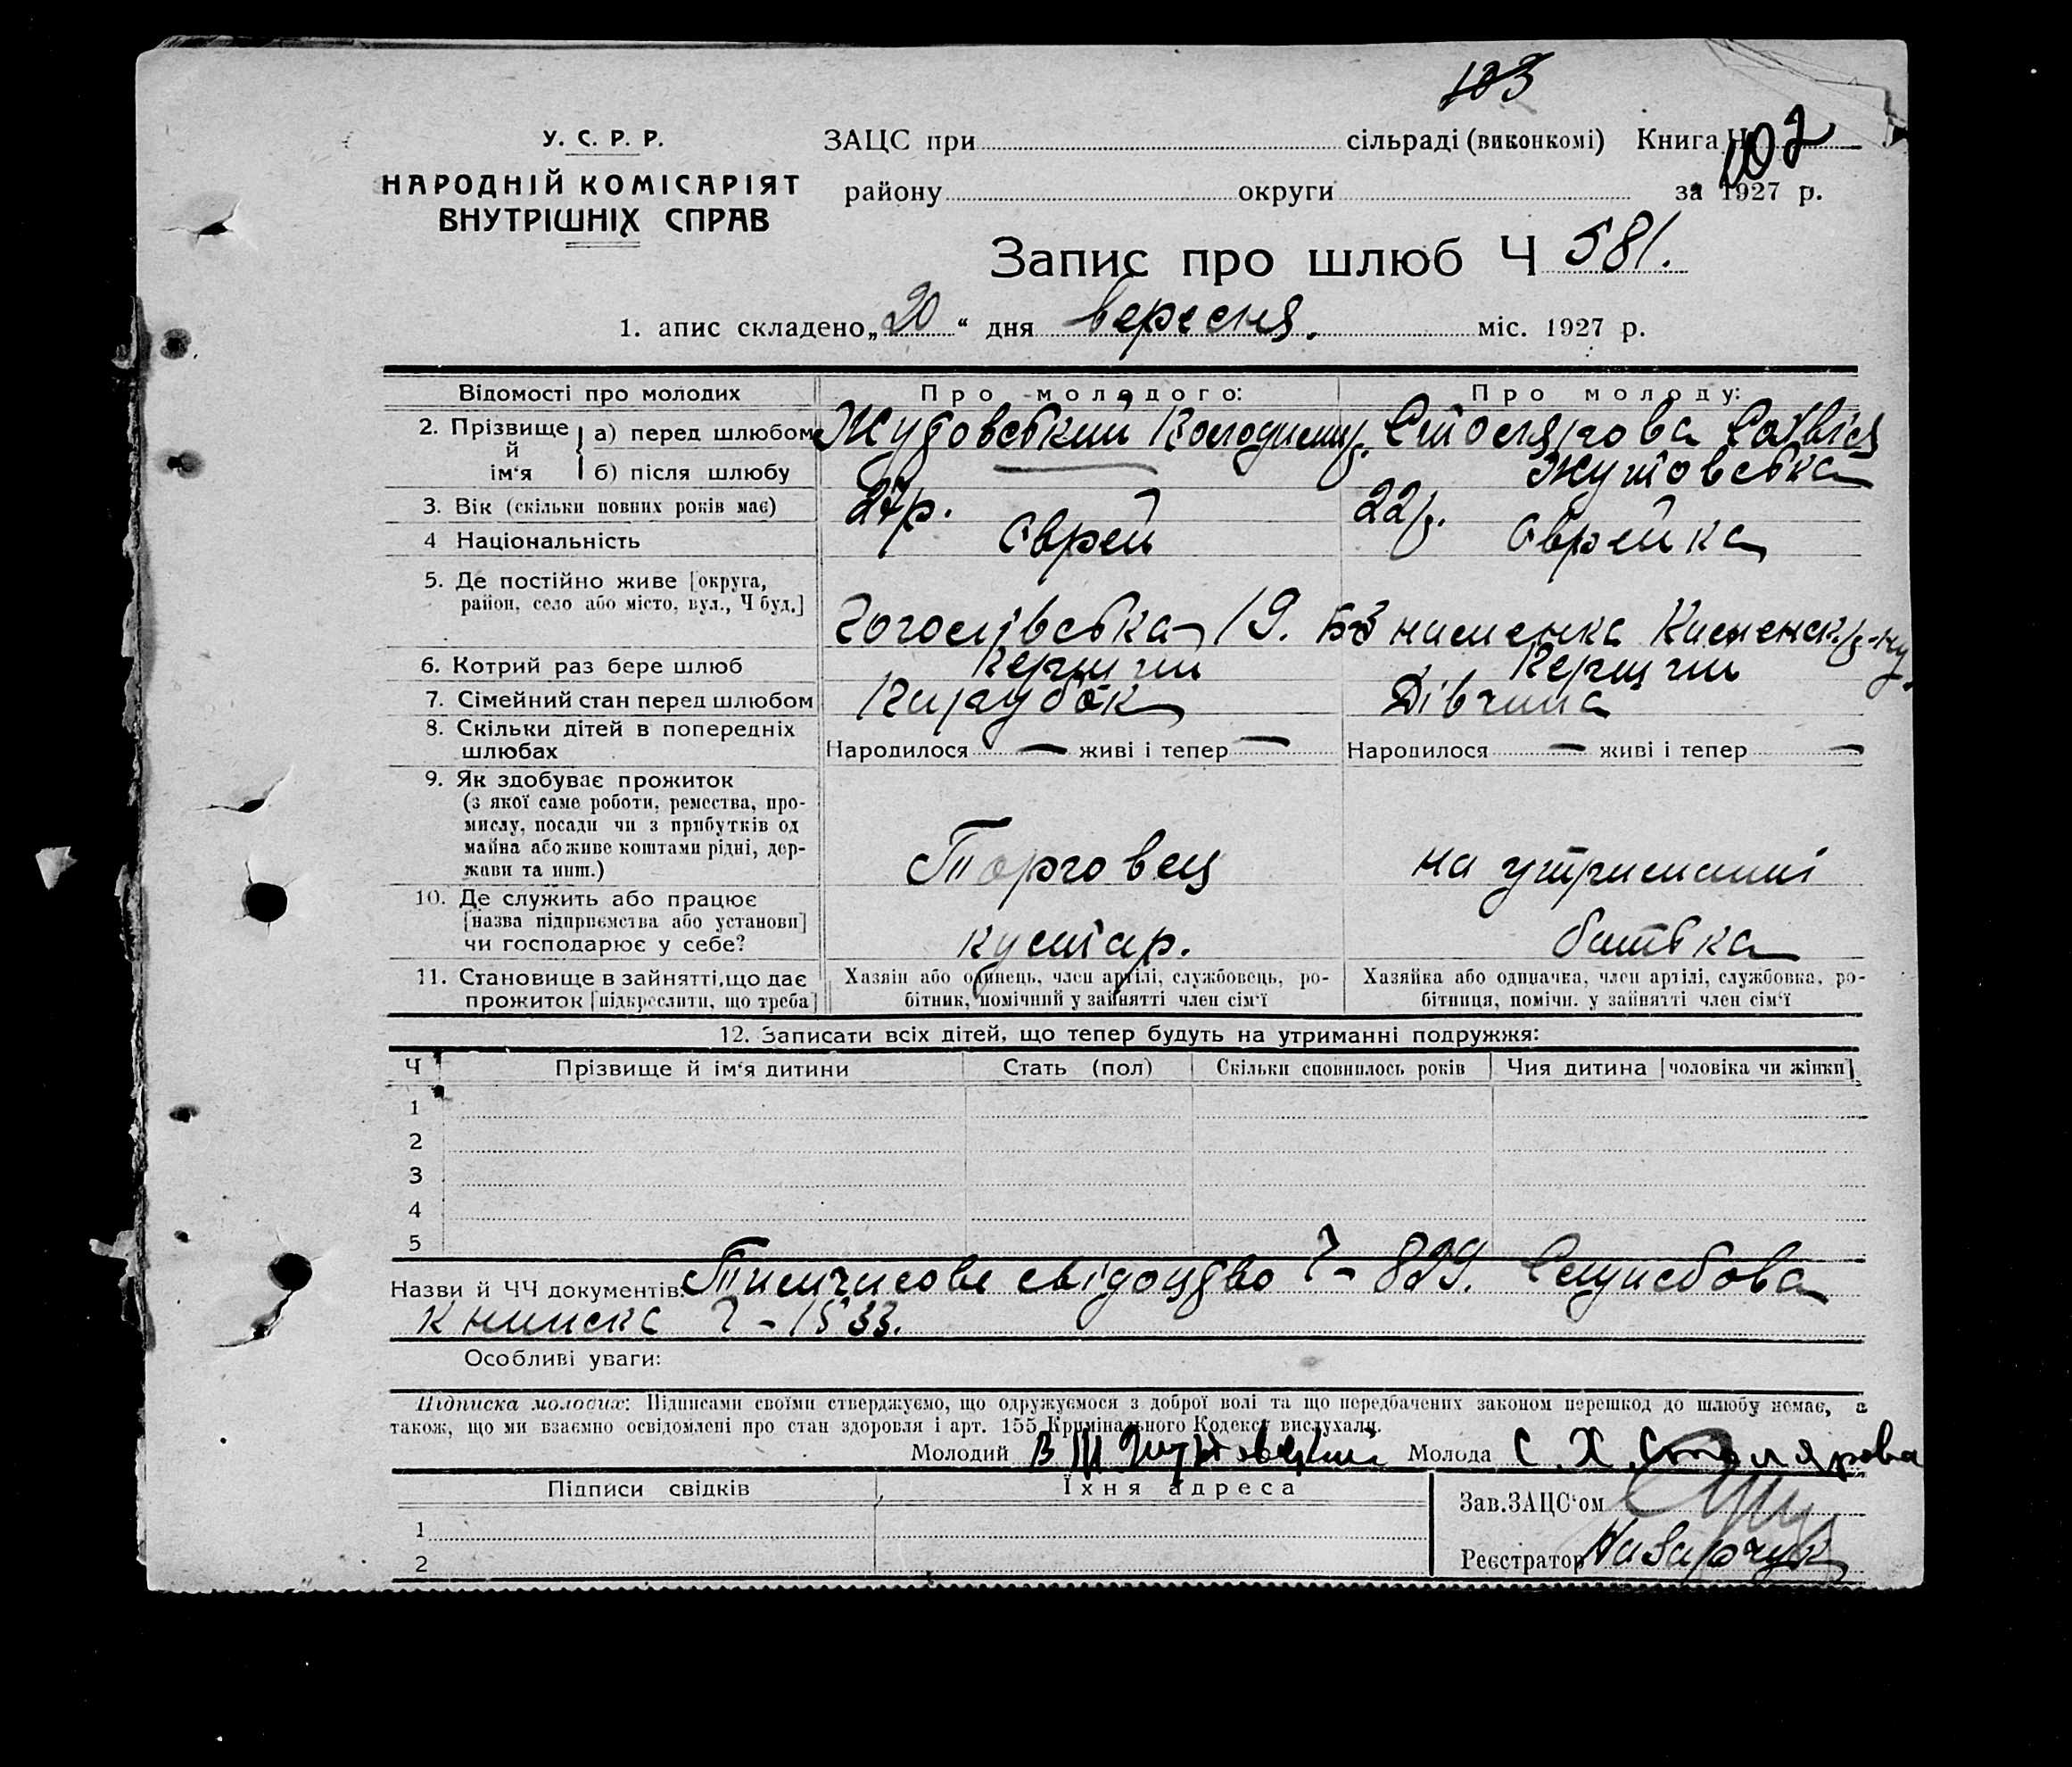 103
У. С. Р. Р.
НАРОДНІЙ КОМІСАРІЯТ
ВНУТРІШНІХ СПРАВ
ЗАЦС при сільраді (виконкомі) Книга Ч 102
району округи за 1927 р.
Запис про шлюб Ч 581.
1. апис складено „20“ дня вересня. міс. 1927 р.
Відомості про молодих Про молодого: Про молоду:
2. Прізвище й ім‘я а) перед шлюбом Жудовський Володимир. Столярова Софвія
б) після шлюбу Жутовська
3. Вік (скільки повних років має) 27р. 22р.
4 Національність Єврей Єврейка
5. Де постійно живе [округа,
район, село або місто, вул., Ч буд.] Гоголівська 19. Знаменка
6. Котрий раз бере шлюб Перший Перший
7. Сімейний стан перед шлюбом Парубок Дівчина
8. Скільки дітей в попередніх
шлюбах Народилося — живі і тепер — Народилося — живі і тепер —
9. Як здобуває прожиток
(з якої саме роботи, ремества, про-
мислу, посади чи з прибутків од
майна або живе коштами рідні, дер-
жави та инш.) Торговец на утриманні
10. Де служить або працює
[назва підприємства або установи]
чи господарює у себе? кустар. батька
11. Становище в зайнятті, що дає
прожиток [підкреслити, що треба]
Хазяїн або одинець, член артілі, службовець, ро-
бітник, помічний у зайнятті член сім‘ї
Хазяйка або одиначка, член артілі, службовка, ро-
бітниця, помічн. у зайнятті член сім‘ї
12. Записати всіх дітей, що тепер будуть на утриманні подружжя:
Ч Прізвище й ім‘я дитини Стать (пол) Скільки сповнилось років Чия дитина [чоловіка чи жінки]
1
2
3
4
5
Назви й ЧЧ документів: Тимчисове свідоцдво Ч - 829. Службова
книжка Ч - 1533.
Особливі уваги:
Підписка молодих: Підписами своїми стверджуємо, що одружуємося з доброї волі та що передбачених законом перешкод до шлюбу немає, а
також, що ми взаємно освідомлені про стан здоровля і арт. 155 Кримінального Кодексу вислухали.
Молодий Молода С. Х. Столярова
Підписи свідків Їхня адреса
1
2
Зав. ЗАЦС‘ом
Реєстратор Назарчук